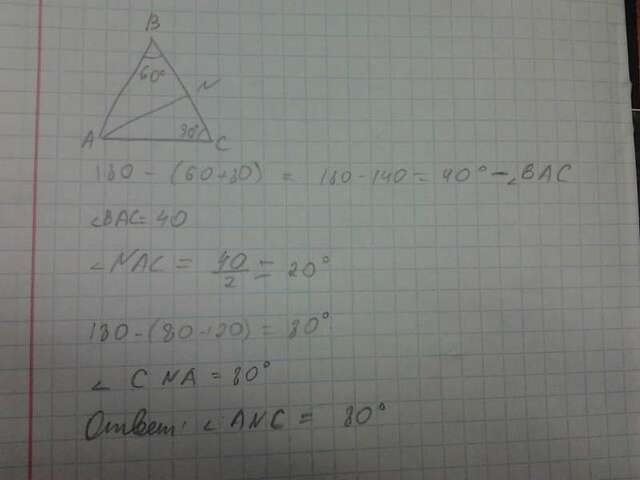 B
60°
N
A
80°
C
180 - (60+80) = 180-140 = 40° - ∠BAC
∠BAC = 40
∠NAC = 40/2 = 20°
180-(80+20) = 80°
∠ CNA = 80°
Ответ: ∠ANC = 80°